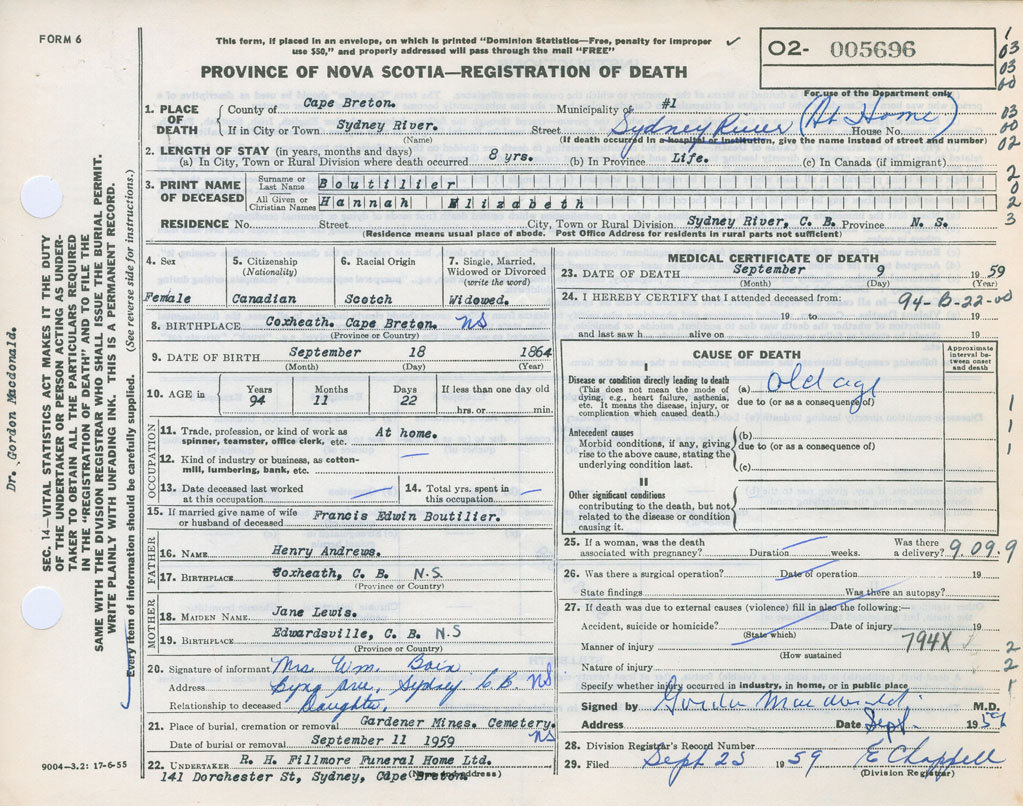 FORM 6
This form, if placed in an envelope, on which is printed "Dominion Statistics—Free, penalty for improper
use $50," and properly addressed will pass through the mail "FREE"
02- 005696
For use of the Department only
PROVINCE OF NOVA SCOTIA—REGISTRATION OF DEATH
1. PLACE OF DEATH
County of Cape Breton. Municipality of #1
If in City or Town Sydney River. Street Sydney River (At Home) House No.
(Name) (If death occurred in a hospital or institution, give the name instead of street and number)
2. LENGTH OF STAY (in years, months and days)
(a) In City, Town or Rural Division where death occurred 8 yrs. (b) In Province Life. (c) In Canada (if immigrant)
3. PRINT NAME OF DECEASED
Surname or Last Name Boutilier
All Given or Christian Names Hannah Elizabeth
RESIDENCE No. Street City, Town or Rural Division Sydney River, C. B. Province N. S.
(Residence means usual place of abode. Post Office Address for residents in rural parts not sufficient)
4. Sex Female
5. Citizenship (Nationality) Canadian
6. Racial Origin Scotch
7. Single, Married, Widowed or Divorced (write the word) Widowed.
8. BIRTHPLACE Coxheath. Cape Breton. NS
(Province or Country)
9. DATE OF BIRTH September 18 1864
(Month) (Day) (Year)
10. AGE in Years 94 Months 11 Days 22 If less than one day old hrs. or min.
OCCUPATION
11. Trade, profession, or kind of work as spinner, teamster, office clerk, etc. At home.
12. Kind of industry or business, as cotton-mill, lumbering, bank, etc.
13. Date deceased last worked at this occupation
14. Total yrs. spent in this occupation
15. If married give name of wife or husband of deceased Francis Edwin Boutilier.
FATHER
16. NAME Henry Andrews.
17. BIRTHPLACE Coxheath, C. B. N.S.
(Province or Country)
MOTHER
18. MAIDEN NAME Jane Lewis.
19. BIRTHPLACE Edwardsville, C. B. N.S
(Province or Country)
20. Signature of informant Mrs. Wm. Boin
Address Ave, Sydney C.B. NS
Relationship to deceased Daughter,
21. Place of burial, cremation or removal Gardener Mines. Cemetery. NS
Date of burial or removal September 11 1959
22. UNDERTAKER R. H. Fillmore Funeral Home Ltd.
(Name and address)
141 Dorchester St, Sydney, Cape Breton
9004—3.2: 17-6-55
MEDICAL CERTIFICATE OF DEATH
23. DATE OF DEATH September 9 1959
(Month) (Day) (Year)
24. I HEREBY CERTIFY that I attended deceased from: 94-B-22-00
19 to 19
and last saw h alive on 19
CAUSE OF DEATH
Approximate interval between onset and death
I
Disease or condition directly leading to death
(This does not mean the mode of dying, e.g., heart failure, asthenia, etc. It means the disease, injury, or complication which caused death.)
(a) old age
due to (or as a consequence of)
Antecedent causes
Morbid conditions, if any, giving rise to the above cause, stating the underlying condition last.
(b)
due to (or as a consequence of)
(c)
II
Other significant conditions
contributing to the death, but not related to the disease or condition causing it.
25. If a woman, was the death associated with pregnancy? Duration weeks. Was there a delivery? 9.09.9
26. Was there a surgical operation? Date of operation 19
State findings Was there an autopsy?
27. If death was due to external causes (violence) fill in also the following:—
Accident, suicide or homicide? Date of injury 19
(State which)
Manner of injury 794X
(How sustained
Nature of injury
Specify whether injury occurred in industry, in home, or in public place
Signed by Gordon Macdonald M.D.
Address Date Sept. 1959
28. Division Registrar's Record Number
29. Filed Sept 23 1959 E Chappell
(Division Registrar)
1
03
03
00
03
00
02
2
0
2
3
1
1
1
2
2
1
SEC. 14—VITAL STATISTICS ACT MAKES IT THE DUTY
OF THE UNDERTAKER OR PERSON ACTING AS UNDER-
TAKER TO OBTAIN ALL THE PARTICULARS REQUIRED
IN THE "REGISTRATION OF DEATH" AND TO FILE THE
SAME WITH THE DIVISION REGISTRAR WHO SHALL ISSUE THE BURIAL PERMIT.
WRITE PLAINLY WITH UNFADING INK. THIS IS A PERMANENT RECORD.
Every item of information should be carefully supplied. (See reverse side for instructions.)
Dr. Gordon Macdonald.